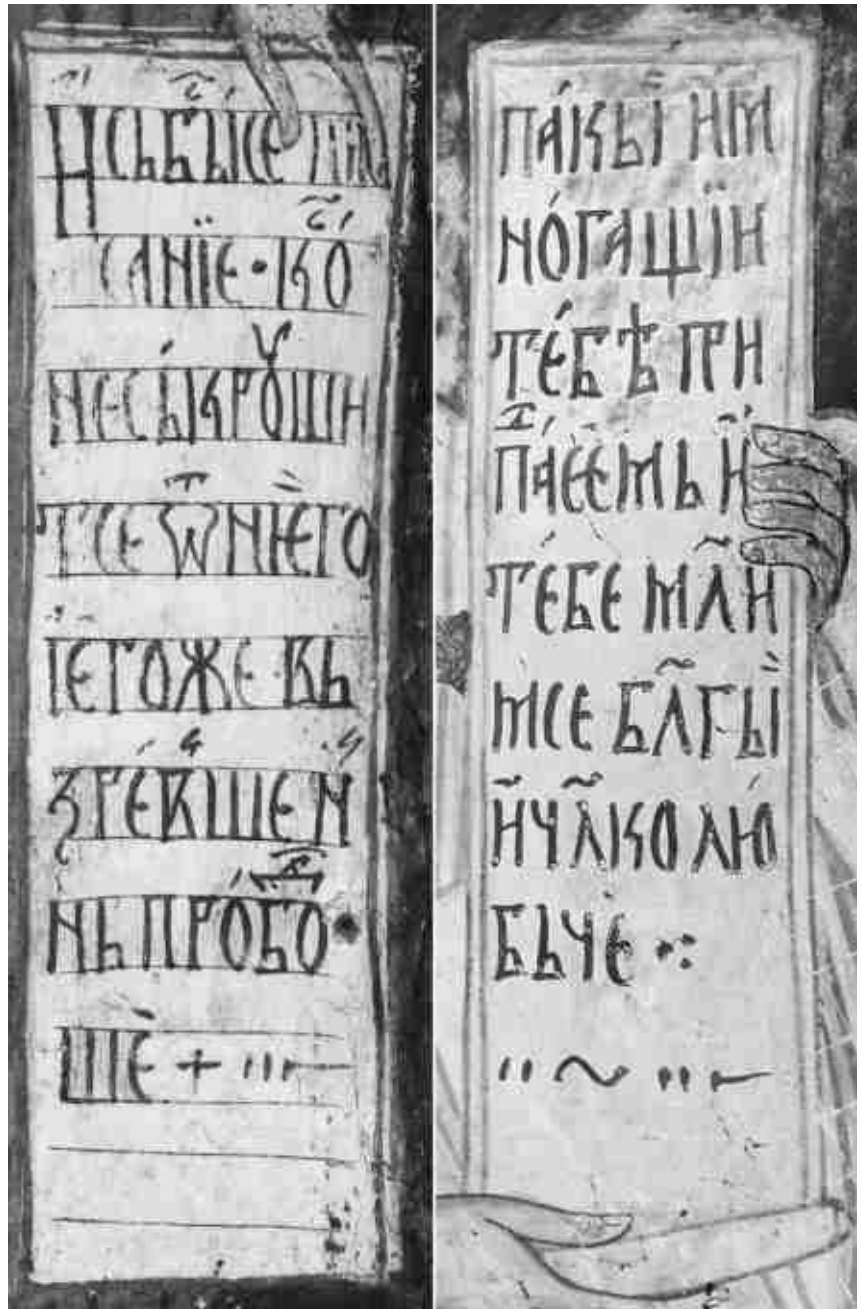 И съб́ысе пи
санїе · ко
не съкрꙋши
тсе ѿ нѥго
ѥгоже · въ
зре́вше н
нь про́бо
ше̏ + ···—
па́кꙑ и м
но́гащїи
те́бѣ при
па́еемь и҆
те́бе мл҃и
мсе бл҃гꙑ
и҆ чл҃колю́
бьче ⁘
·· ~ ·· —